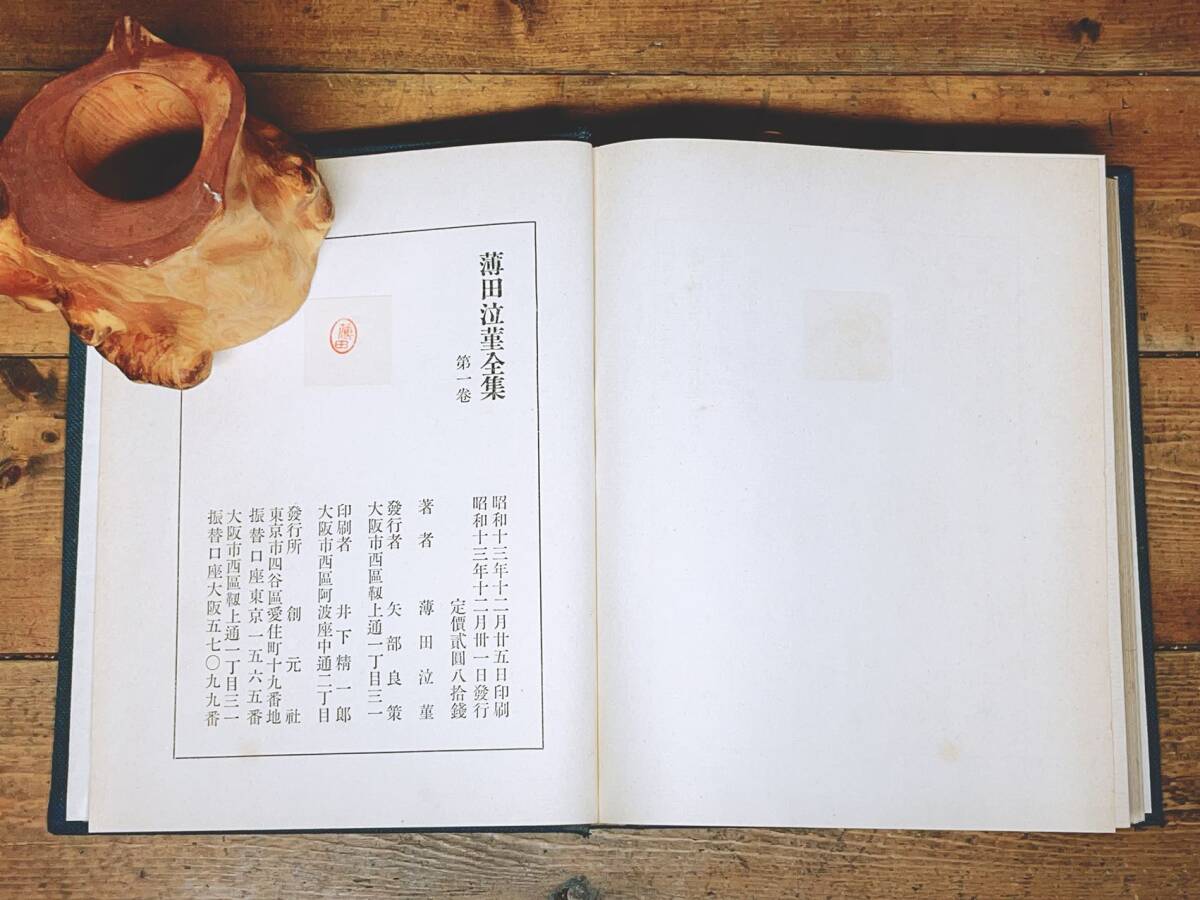 薄田泣菫全集
第一卷
薄田
昭和十三年十二月廿五日印刷
昭和十三年十二月卅一日發行
定價貳圓八拾錢
著者 薄田泣菫
發行者 矢部良策
大阪市西區靱上通一丁目三一
印刷者 井下精一郎
大阪市西區阿波座中通二丁目
發行所 創元社
東京市四谷區愛住町十九番地
振替口座東京一五六五番
大阪市西區靱上通一丁目三一
振替口座大阪五七〇九九番